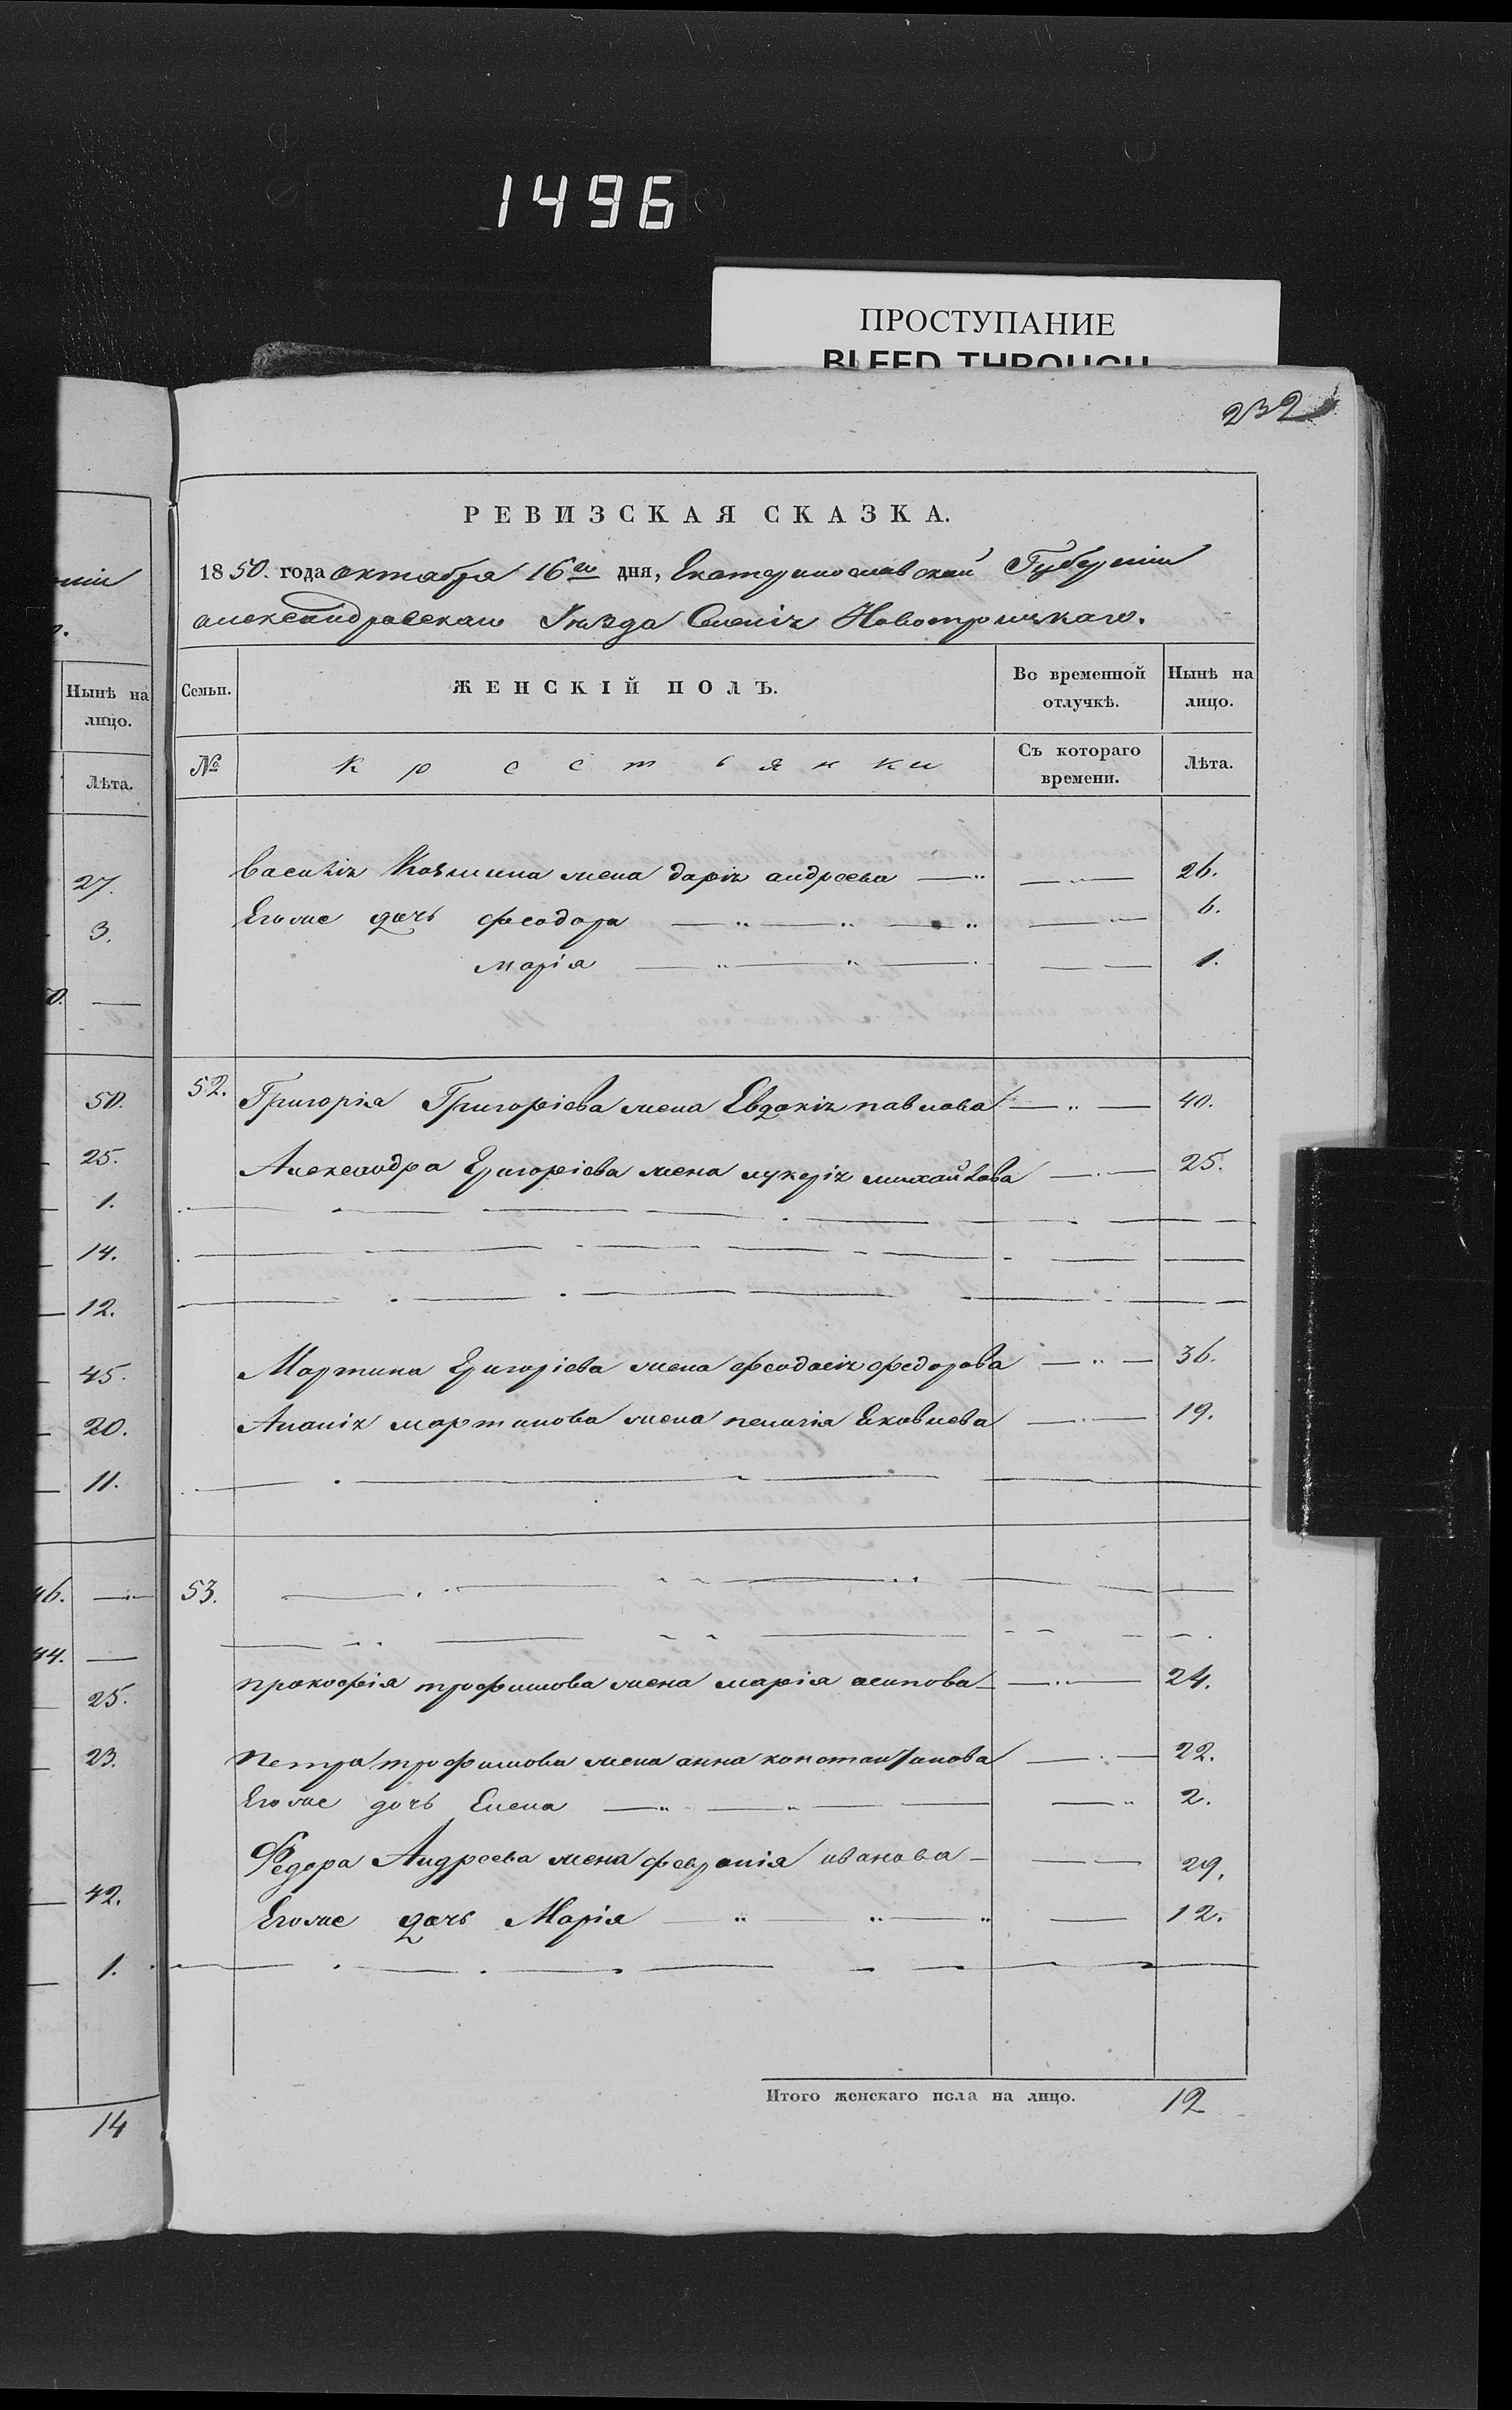 1496
ПРОСТУПАНИЕ
BLEED THROUGH
232
РЕВИЗСКАЯ СКАЗКА.
1850. года октабра 16го дня, Екатеринославской Губерніи
александровскаго Уѣзда Селенія Новотроицкаго.
Семьи. ЖЕНСКІЙ ПОЛЪ. Во временной отлучкѣ. Нынѣ на лицо.
№ Крестьянки Съ котораго времени. Лѣта.
Василія Козьмина жена дарія андреева 26.
Егоже дочь феодора 6.
марія 1.
52. Григорія Григоріева жена Евдокія павлова 40.
Александра Григоріева жена лукерія михайлова 25.
Мартина Григоріева жена феодосія федорова 36.
Ананія мартинова жена пелагія Яковлева 19.
53.
прокофія трофимова жена марія осипова 24.
петра трофимова жена анна константинова 22.
Егоже дочь Елена 2.
Федора Андреева жена февронія иванова 29.
Егоже дочь Марія 12.
Итого женскаго пола на лицо. 12
Нынѣ на
лицо.
Лѣта.
27.
3.
50.
25.
1.
14.
12.
45.
20.
11.
46.
44.
25.
23.
42.
1.
14